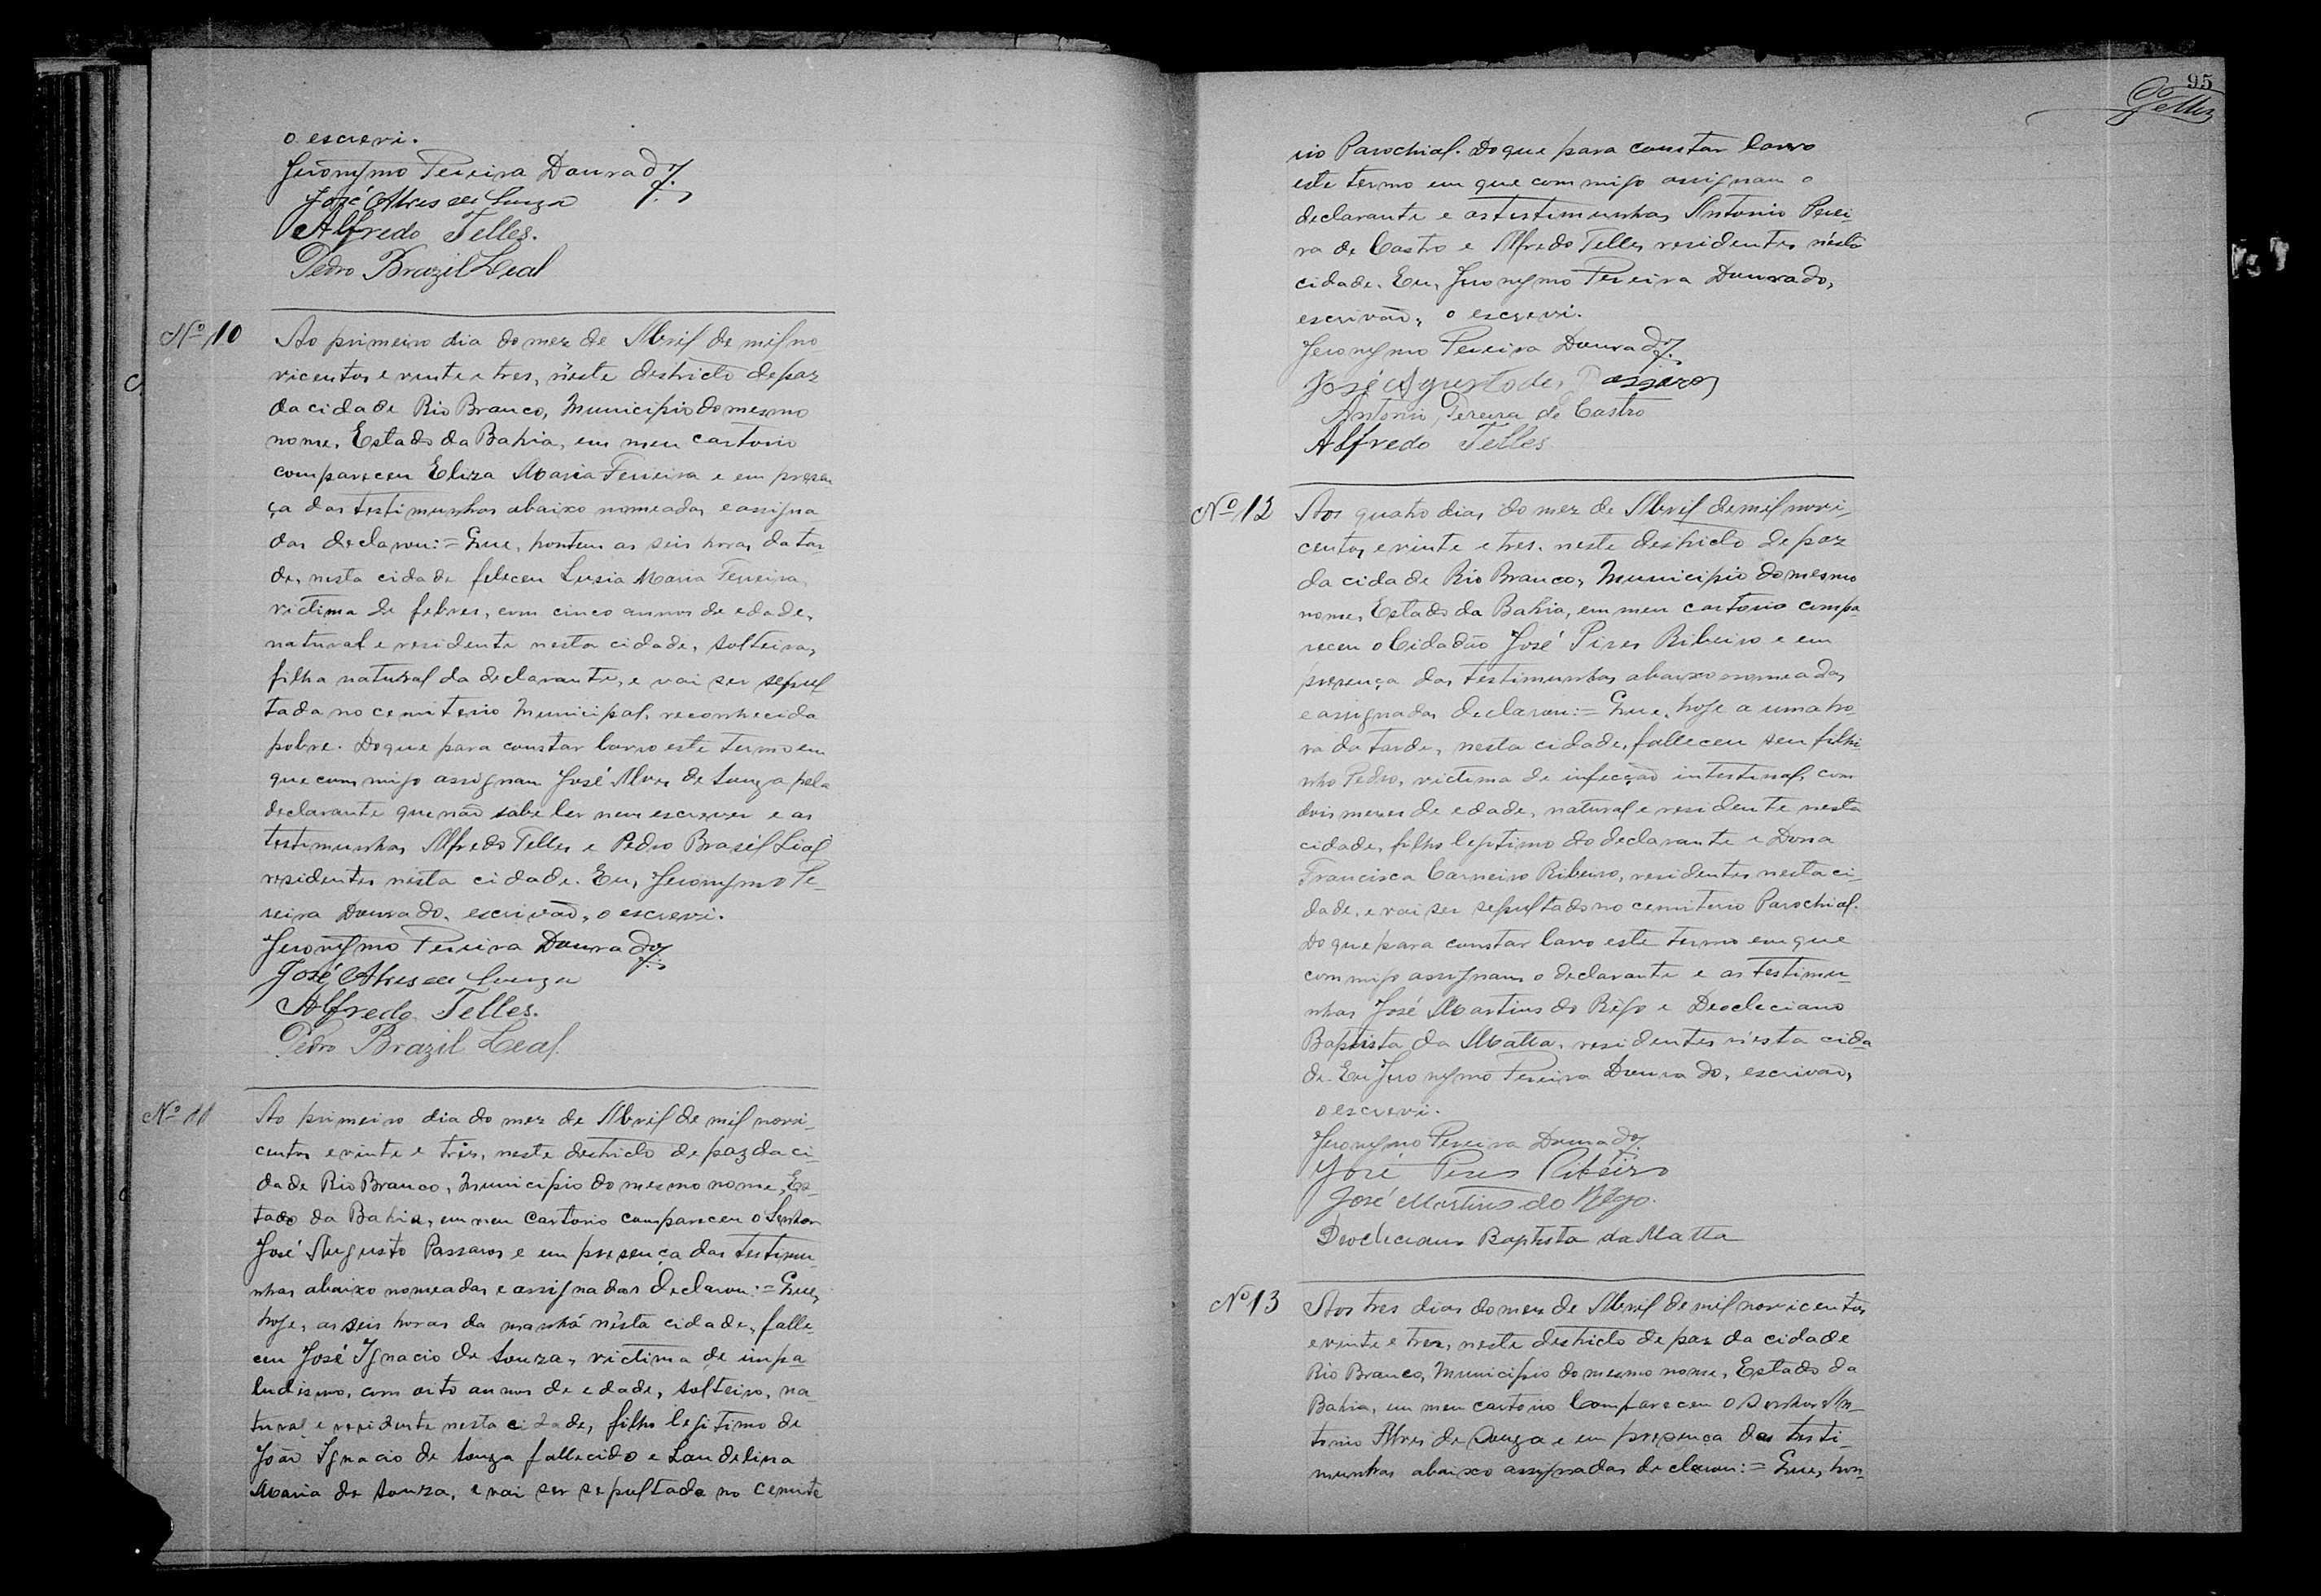 o escrevi.
Jeronymo Pereira Dourado
José Alves de Souza
Alfredo Telles.
Pedro Brazil Leal
Nº 10
Ao primeiro dia do mez de Abril de mil no-
vicentos e vinte e tres, n'este destricto de paz
da cidade Rio Branco, Municipio do mesmo
nome, Estado da Bahia, em meu cartorio
compareceu Eliza Maria Ferreira e em presen
ça das testimunhas abaixo nomeadas e assigna
das declarou:= Que, hontem as seis horas da tar-
de, nesta cidade feleceu Lusia Maria Ferreira,
victima de febres, com cinco annos de edade,
natural e residente nesta cidade, solteira,
filha natural da declarante, e vai ser sepul
tada no cemiterio Municipal, reconhecida
pobre. Do que para constar lavro este termo em
que commigo assignam José Alves de Souza pela
declarante que não sabe ler nem escrever e as
testimunhas Alfredo Telles e Pedro Brasil Lial
residentes nesta cidade. Eu, Jeronymo Pe-
reira Dourado, escrivão, o escrevi.
Jeronymo Pereira Dourado
José Alves de Souza
Alfredo Telles.
Pedro Brazil Leal.
Nº 11
Ao primeiro dia do mez de Abril de mil novi-
centos e vinte e três, neste destricto de paz da ci-
dade Rio Branco, Municipio do mesmo nome, Es-
tado da Bahia, em meu Cartorio compareceu o Senhor
José Augusto Passaros e em presença das testimu-
nhas abaixo nomeadas e assignadas declarou:= Que,
hoje, as seis horas da manhã n'esta cidade, falle-
ceu José Ignacio de Souza, victima de impa
ludismo, com oito annos de edade, solteiro, na
tural e residente nesta cidade, filho legitimo de
João Ignacio de Souza fallecido e Laudelina
Maria de Souza, e vai ser sepultado no cemite
95
Telles
rio Parochial. Do que para constar lavro
este termo em que commigo assignam o
declarante e as testimunhas Antonio Perei-
ra de Castro e Alfredo Telles residentes n'esta
cidade. Eu, Jeronymo Pereira Dourado,
escrivão, o escrevi.
Jeronymo Pereira Dourado
José Agusto de Passaros
Antonio Pereira de Castro
Alfredo Telles
Nº 12
Aos quatro dias do mez de Abril de mil novi-
centos e vinte e tres, neste destricto de paz
da cidade Rio Branco, Municipio do mesmo
nome, Estado da Bahia, em meu cartorio compa-
receu o Cidadão José Pires Ribeiro e em
presença das testimunhas abaixo nomeadas
e assignadas declarou:= Que, hoje a uma ho-
ra da tarde, nesta cidade, falleceu seu filhi-
nho Pedro, victima de infecção intestinal, com
dois mezes de edade, natural e residente nesta
cidade, filho legitimo do declarante e Dona
Francisca Carneiro Ribeiro, residentes nesta ci-
dade, e vai ser sepultado no cemiterio Parochial.
Do que para constar lavro este termo em que
commigo assignam o declarante e as testimu-
nhas José Martins do Rêgo e Deocleciano
Baptista da Matta, residentes n'esta cida
de. Eu Jeronymo Pereira Dourado, escrivão,
o escrevi.
Jeronymo Pereira Dourado
José Pires Ribeiro
José Martins do Rêgo.
Deocleciano Baptista da Matta
Nº 13
Aos tres dias do mez de Abril de mil novicentos
e vinte e trez, neste destricto de paz da cidade
Rio Branco, Municipio do mesmo nome, Estado da
Bahia, em meu cartorio Compareceu o Senhor An-
tonio Alves de Souza e em presença das testi-
munhas abaixo assignadas declarou:= Que, hon-